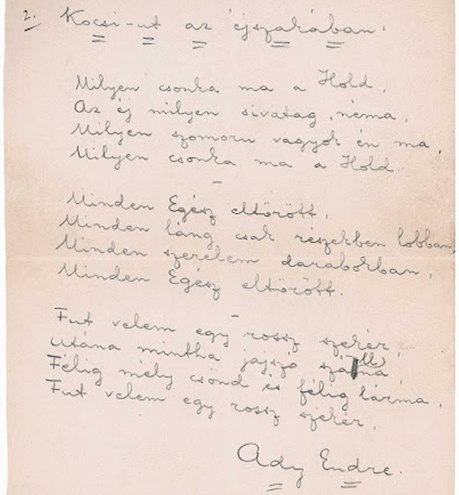 2. Kocsi-ut az éjszakában.
Milyen csonka ma a Hold,
Az éj milyen sivatag, néma,
Milyen szomoru vagyok én ma,
Milyen csonka ma a Hold.
Minden Egész eltörött,
Minden láng csak részekben lobban,
Minden szerelem darabokban,
Minden Egész eltörött.
Fut velem egy rossz szekér,
Utána mintha jajszó szállna
Félig mély csönd és félig lárma,
Fut velem egy rossz szekér.
Ady Endre.